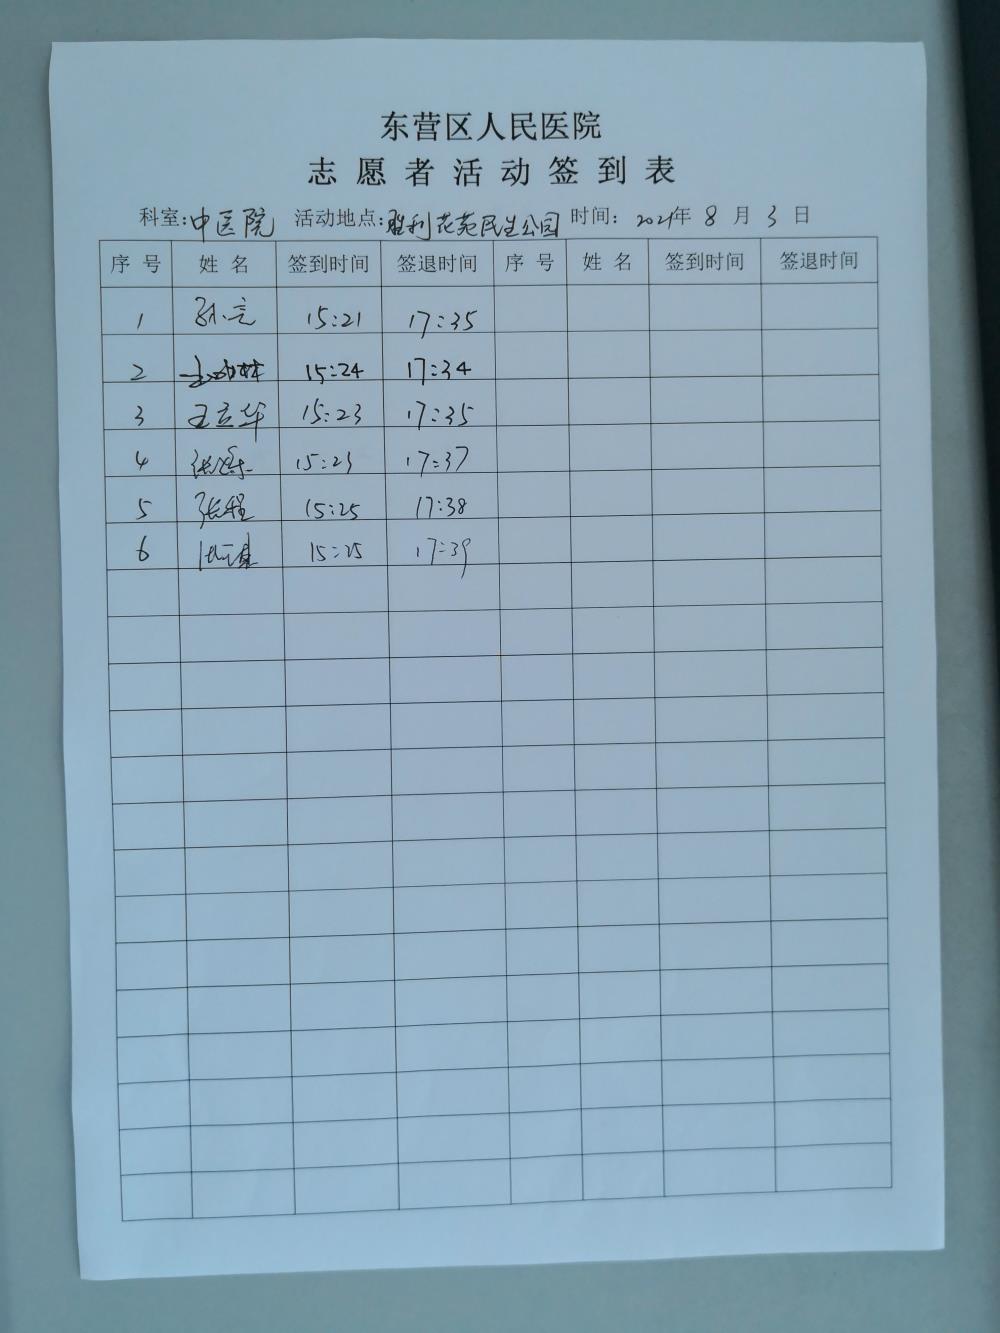 东营区人民医院
志愿者活动签到表
科室:中医院 活动地点:胜利花苑民生公园 时间: 2021年 8 月 3 日
序 号 姓 名 签到时间 签退时间 序 号 姓 名 签到时间 签退时间
1 孙亮 15:21 17:35
2 15:24 17:34
3 王立华 15:23 17:35
4 张 15:23 17:37
5 张程 15:25 17:38
6 15:25 17:39